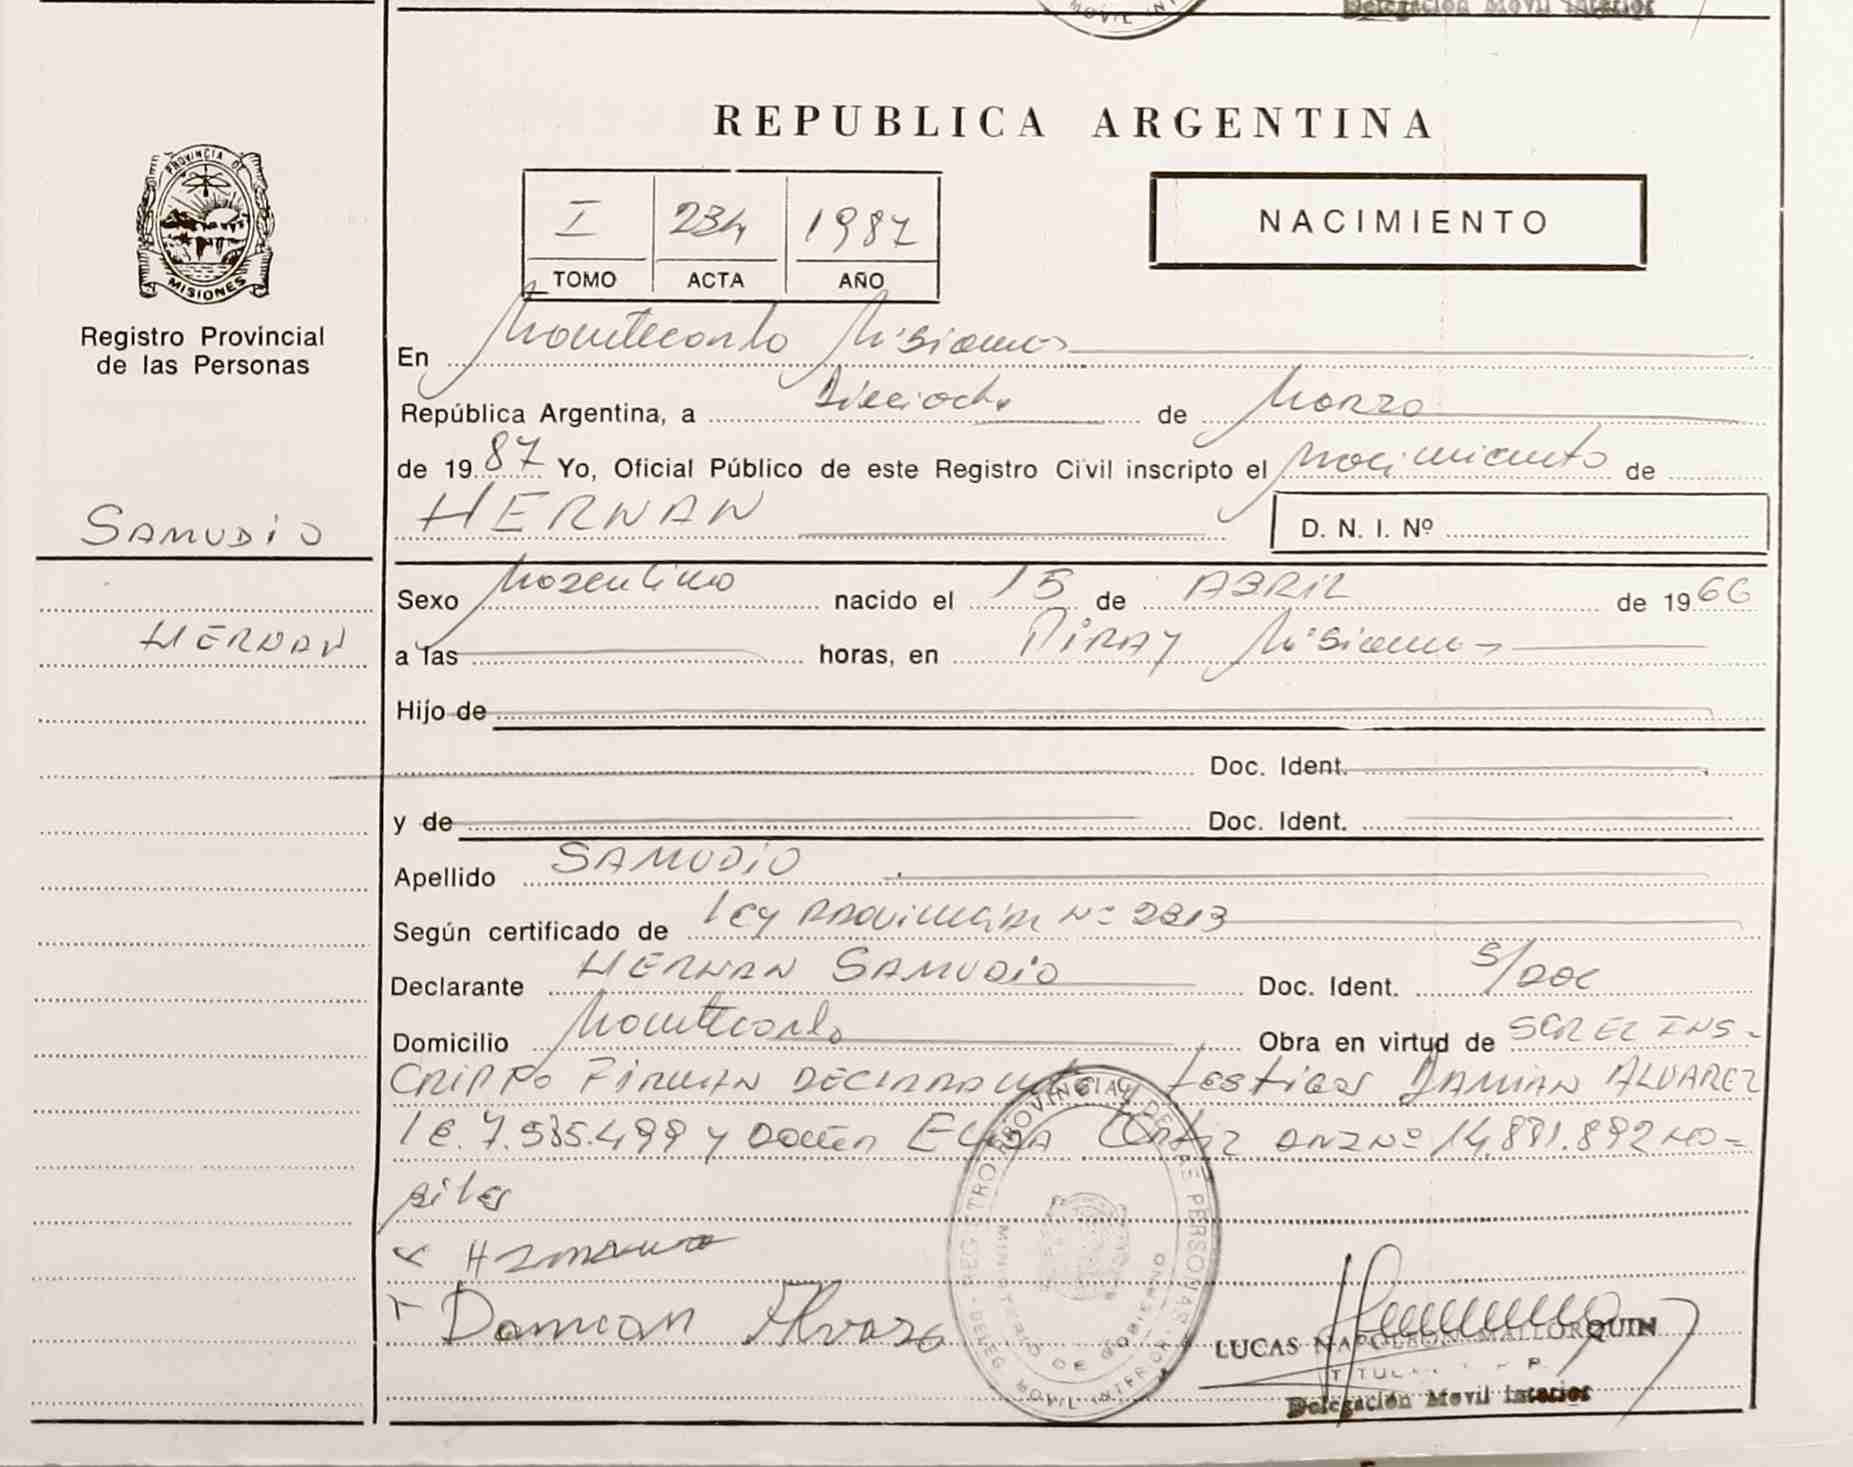 MOVIL INT
Delegación Movil Interior
REPUBLICA ARGENTINA
I 234 1987
TOMO ACTA AÑO
NACIMIENTO
PROVINCIA DE
MISIONES
Registro Provincial
de las Personas
SAMUDIO
HERNAN
En Montecarlo Misiones
República Argentina, a Dieciocho de Marzo
de 1987 Yo, Oficial Público de este Registro Civil inscripto el Nacimiento de
HERNAN D. N. I. Nº
Sexo Masculino nacido el 15 de ABRIL de 1966
a las horas, en PIRAY Misiones
Hijo de
Doc. Ident.
y de Doc. Ident.
Apellido SAMUDIO
Según certificado de Ley PROVINCIAL Nº 2313
Declarante HERNAN SAMUDIO Doc. Ident. S/DOC
Domicilio Montecarlo Obra en virtud de SER EL INS-
CRIPTO FIRMAN DECLARANTE y testigos DAMIAN ALVAREZ
LE. 7.535.499 y DOÑA ELISA Ortiz DNI Nº 14.891.892 HA-
biles
Damian Alvarez
REGISTRO PROVINCIAL DE LAS PERSONAS
MINISTERIO DE GOBIERNO
DELEG MOVIL INTERIOR
LUCAS NAPOLEON MALLORQUIN
Delegación Movil Interior